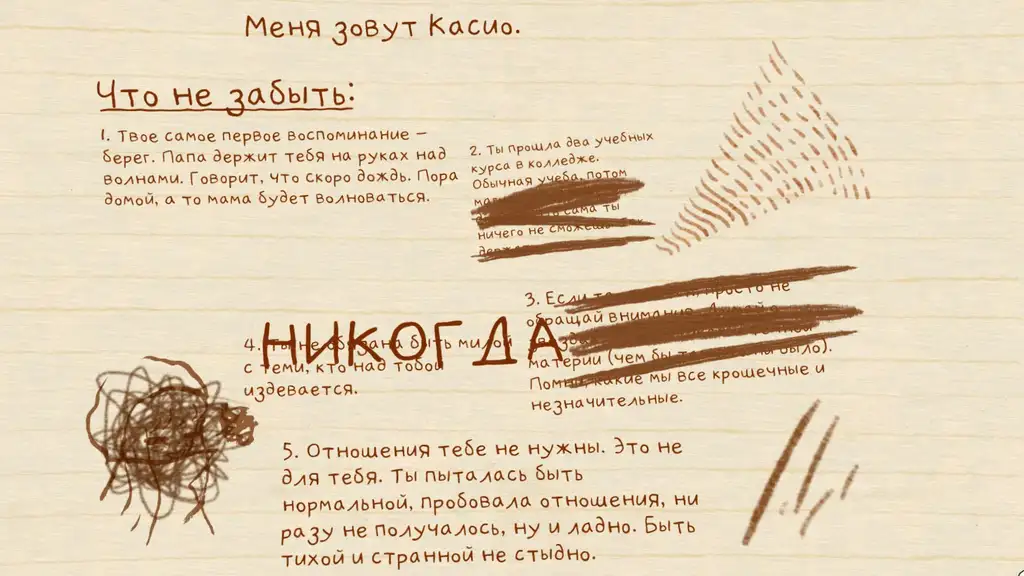 Меня зовут Касио.
Что не забыть:
1. Твое самое первое воспоминание –
берег. Папа держит тебя на руках над
волнами. Говорит, что скоро дождь. Пора
домой, а то мама будет волноваться.
2. Ты прошла два учебных
курса в колледже.
Обычная учеба, потом
сама ты
ничего не сможешь
3. Если просто не
обращай внимания.
материи (чем бы было).
Помни, какие мы все крошечные и
незначительные.
НИКОГДА
4. Ты не обязана быть милой
с теми, кто над тобой
издевается.
5. Отношения тебе не нужны. Это не
для тебя. Ты пыталась быть
нормальной, пробовала отношения, ни
разу не получалось, ну и ладно. Быть
тихой и странной не стыдно.